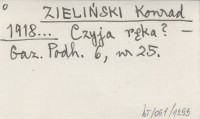 ZIELIŃSKI Konrad
1918... Czyja ręka? —
Gaz. Podh. 6, nr 25.
bJ/061/1293